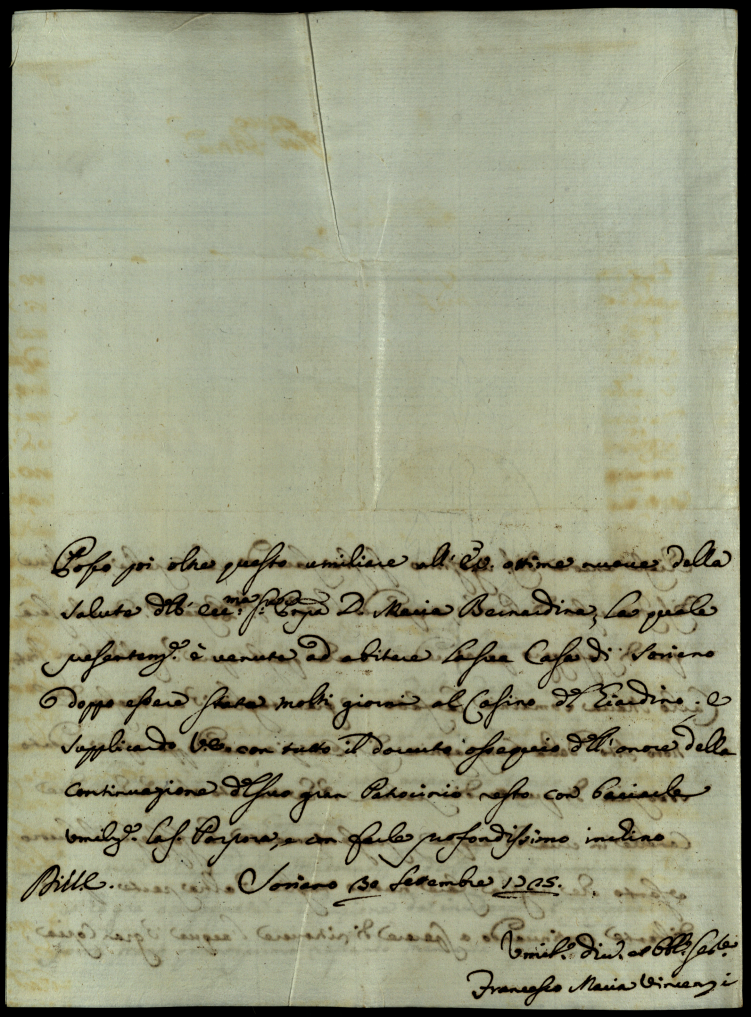 Posso poi oltre questo umiliare all' E.V. ottime nuove della
salute dell' ecc.ma Sig.ra D. Maria Bernardina, la quale
presentem.e è venuta ad abitare la sua Casa di Soriano
doppo essere stata molti giorni al Casino del Giardino. e
supplicando V.E. con tutto il dovuto ossequio dell' onore della
continuazione del suo gran Patrocinio resto con baciarle
umilm.e la S. Porpora, e con farle profondissimo inchino
Soriano 30 Settembre 1725.
Umil.o div. et obb. Ser.re
Francesco Maria Vincenzi